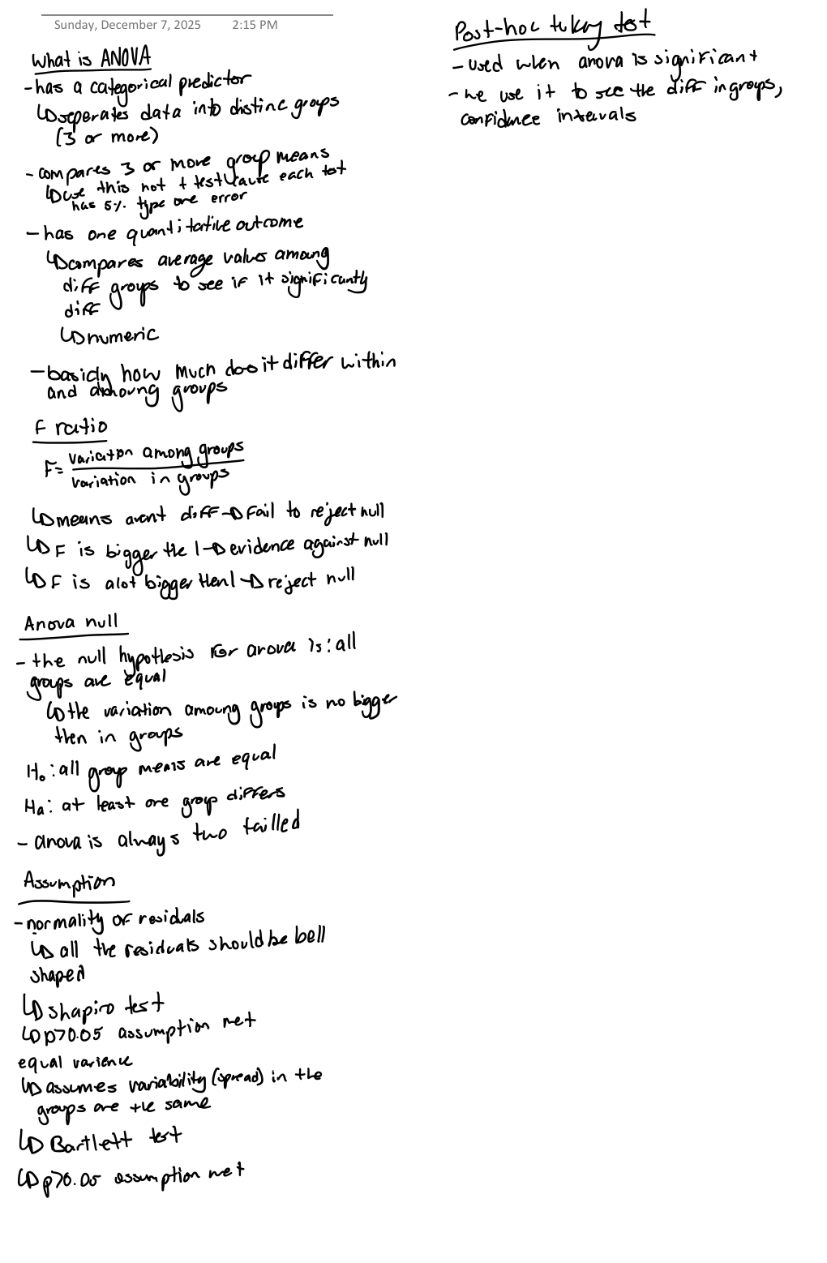 Sunday, December 7, 2025 2:15 PM
What is ANOVA
- has a categorical predictor
↳ seperates data into distinc groups
(3 or more)
- compares 3 or more group means
↳ use this not t test cause each test
has 5% type one error
- has one quantitative outcome
↳ compares average values among
diff groups to see if it significantly
diff
↳ numeric
- basicly how much does it differ within
and amoung groups
F ratio
F = variation among groups
variation in groups
↳ means arent diff → fail to reject null
↳ F is bigger the 1 → evidence against null
↳ F is alot bigger then 1 → reject null
Anova null
- the null hypothesis for anova is: all
groups are equal
↳ the variation amoung groups is no bigger
then in groups
H₀: all group means are equal
Ha: at least one group differs
- anova is always two tailled
Assumption
- normality of residals
↳ all the residuals should be bell
shaped
↳ shapiro test
↳ p>0.05 assumption met
equal varience
↳ assumes variability (spread) in the
groups are the same
↳ Bartlett test
↳ p>0.05 assumption met
Post-hoc tukey test
- used when anova is significant
- we use it to see the diff in groups,
confidence intervals